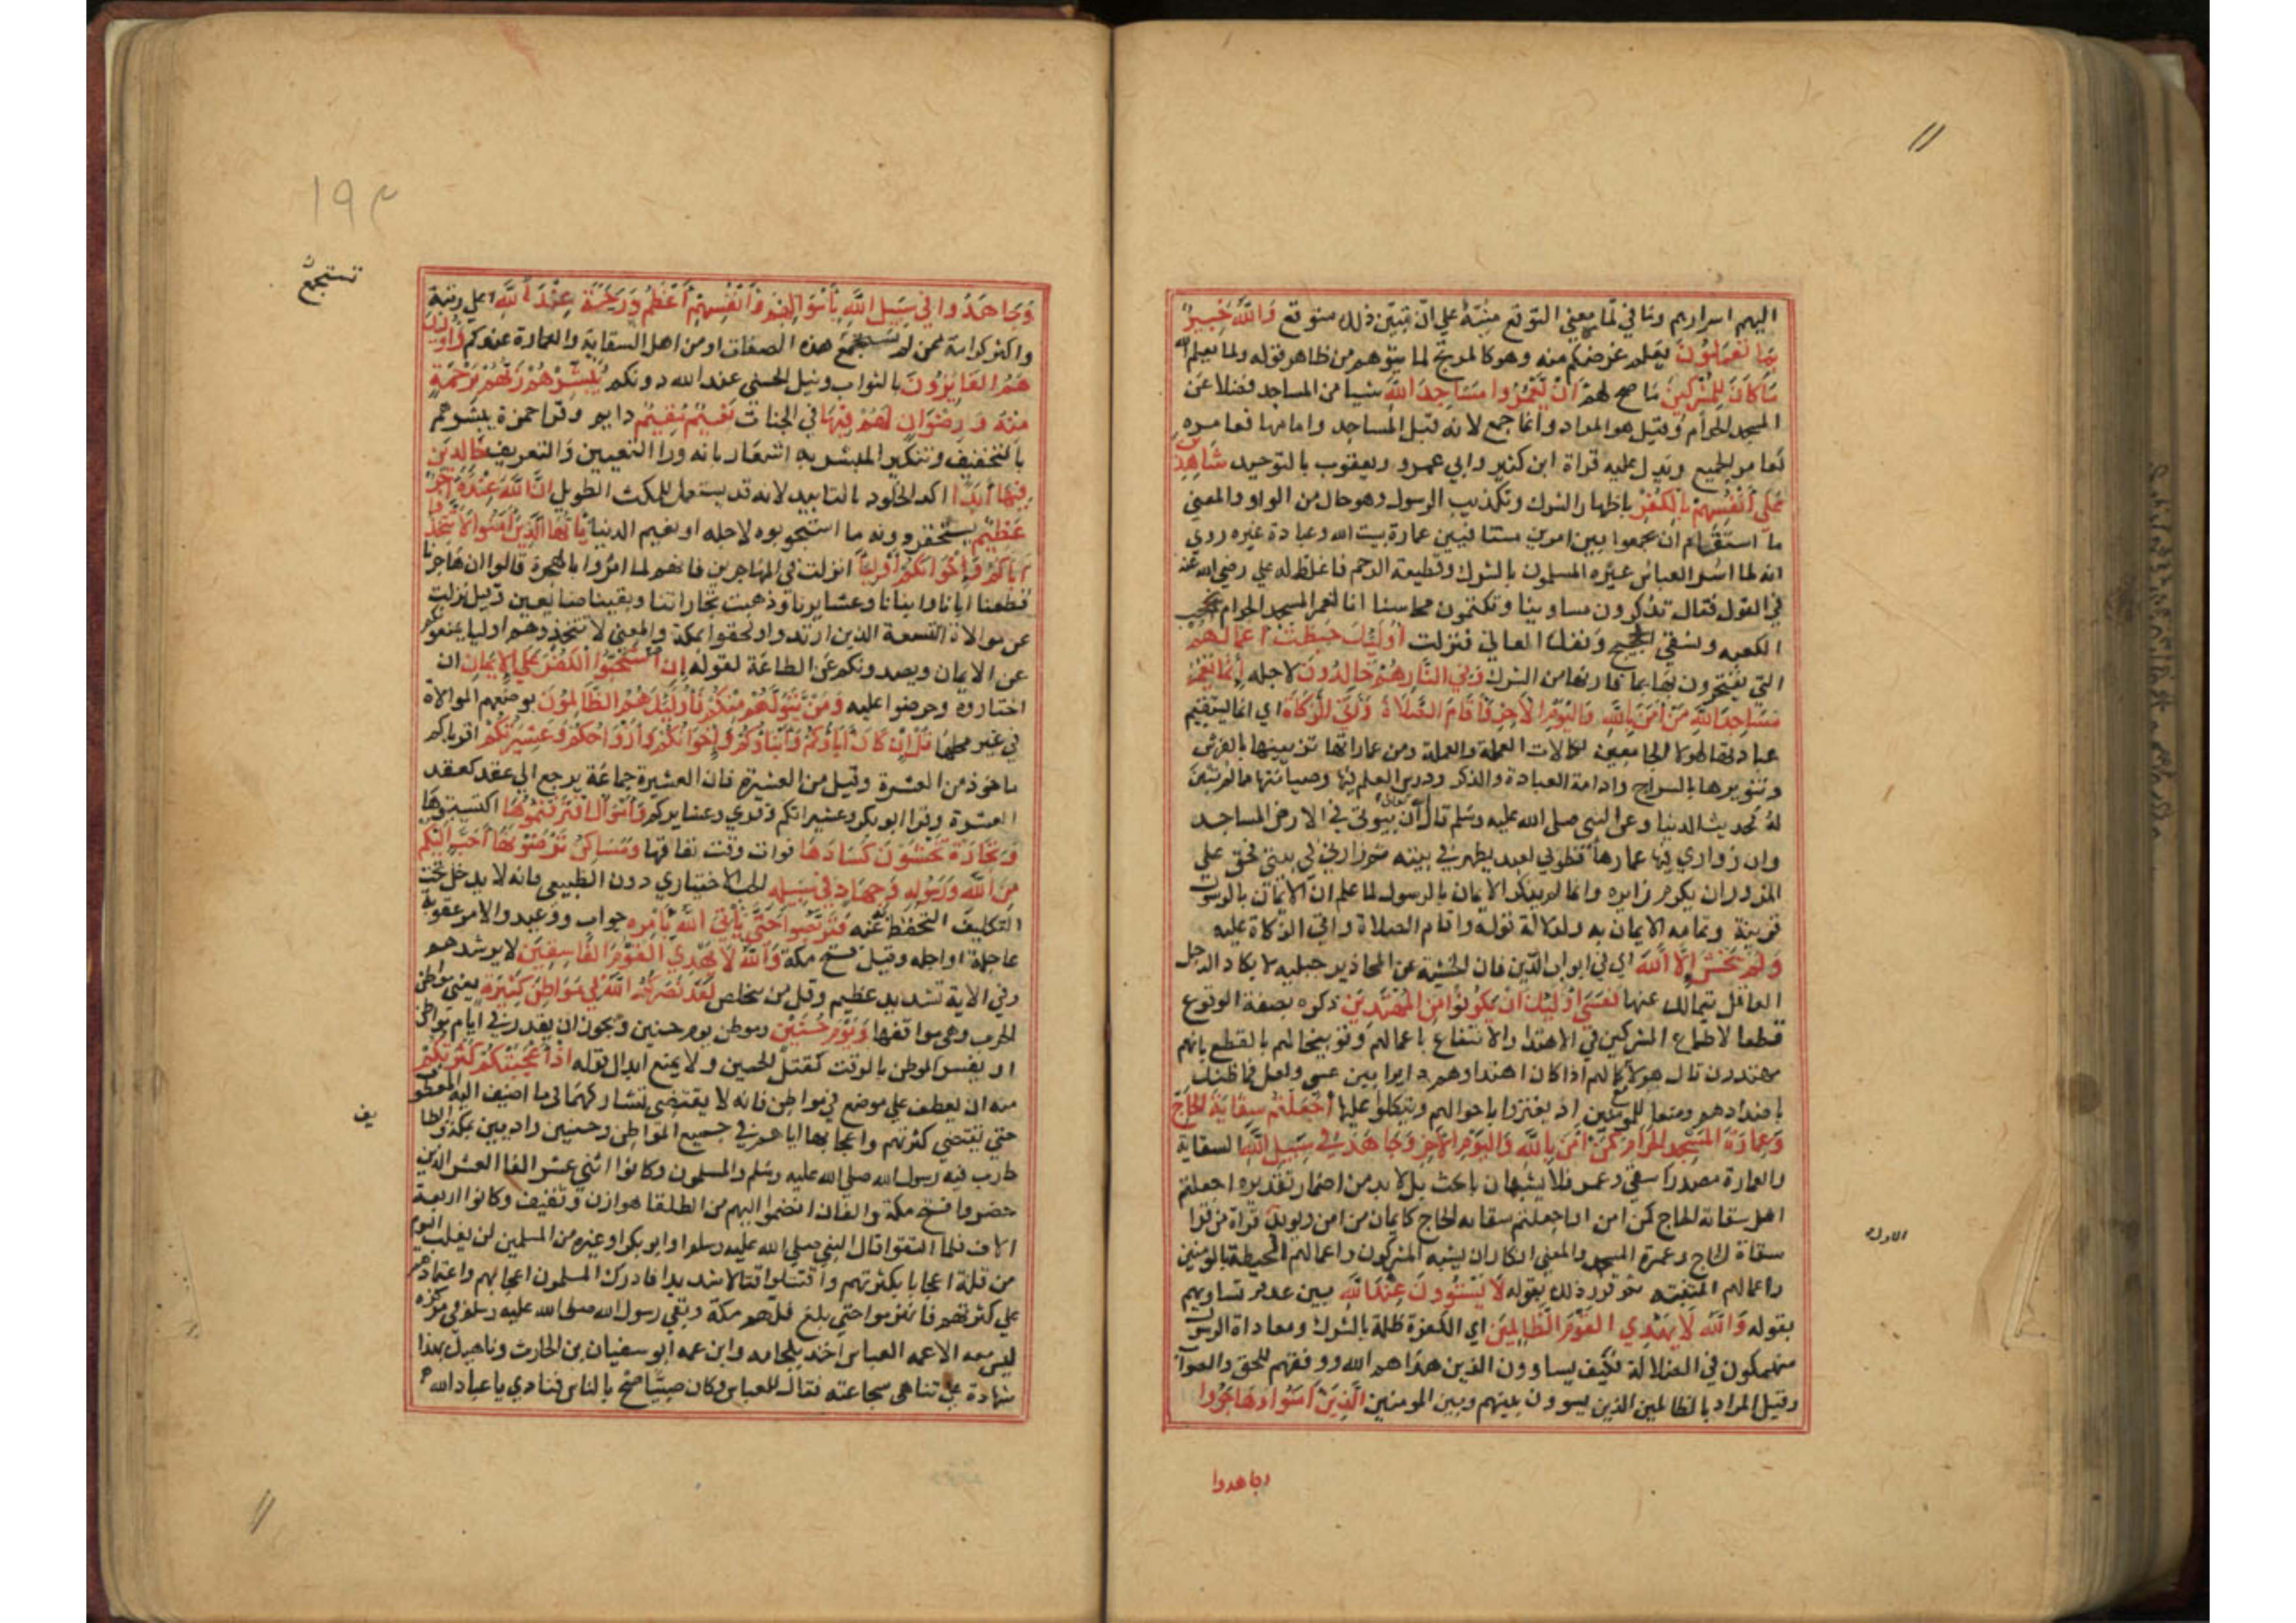 اليهم اسرارهم وما في لما معني التوقع منبئة علي ان تبين ذلك متوقع وَاللَّهُ خَبِيرٌ
بِمَا تَعْمَلُونَ يعلم غرضكم منه وهو كالمزيح لما يتوهم من ظاهر قوله ولما يعلم الله
مَا كَانَ لِلْمُشْرِكِينَ ما صح لهم أَنْ يَعْمُرُوا مَسَاجِدَ اللَّهِ شيا من المساجد فضلا عن
المسجد الحرام وقيل هو المراد وانما جمع لانه قبلة المساجد وامامها فعامره
كعامر الجميع ويدل عليه قراة ابن كثير وابي عمرو ويعقوب بالتوحيد شَاهِدِينَ
عَلَى أَنْفُسِهِمْ بِالْكُفْرِ باظهار الشرك وتكذيب الرسول وهو حال من الواو والمعني
ما استقام ان يجمعوا بين امرين متنافيين عمارة بيت الله وعبادة غيره روي
انه لما اسر العباس عيره المسلمون بالشرك وقطيعة الرحم فاغلظ له علي رضي الله عنه
في القول فقال تذكرون مساوينا وتكتمون محاسننا انا لنعمر المسجد الحرام ونحجب
الكعبه ونسقي الحجيج ونفك العاني فنزلت أُولَئِكَ حَبِطَتْ أَعْمَالُهُمْ
التي يفتخرون بها بما قارنها من الشرك وَفِي النَّارِ هُمْ خَالِدُونَ لاجله إِنَّمَا يَعْمُرُ
مَسَاجِدَ اللَّهِ مَنْ آمَنَ بِاللَّهِ وَالْيَوْمِ الْآخِرِ وَأَقَامَ الصَّلَاةَ وَآتَى الزَّكَاةَ اي انما يستقيم
عمارتها لهولا الجامعين لكمالات العملية والعلمية ومن عمارتها تزيينها بالفرش
وتنويرها بالسراج وادامة العبادة والذكر ودرس العلم فيها وصيانتها مما لم تبن
له كحديث الدنيا وعن النبي صلي الله عليه وسلم قال الله تعالى ان بيوتي في الارض المساجد
وان زواري فيها عمارها فطوبي لعبد يطهر في بيته ثم زارني في بيتي فحق علي
المزور ان يكرم زايره وانما لم يذكر الايمان بالرسول لما علم ان الايمان بالله
قرينة وتمامه الايمان به ولدلالة قوله واقام الصلاة واتي الزكاة عليه
وَلَمْ يَخْشَ إِلَّا اللَّهَ اي في ابواب الدين فان الخشية عن المحاذير جبلية لا يكاد الرجل
العاقل يتمالك عنها فَعَسَى أُولَئِكَ أَنْ يَكُونُوا مِنَ الْمُهْتَدِينَ ذكره بصيغة التوقع
قطعا لاطماع المشركين في الاهتدا والانتفاع باعمالهم وتوبيخا لهم بالقطع بانهم
مهتدون فان هولا مع كمالهم اذا كان اهتداوهم دايرا بين عسي ولعل فما ظنك
باضدادهم ومنعا للمومنين ان يغتروا باحوالهم ويتكلوا عليها أَجَعَلْتُمْ سِقَايَةَ الْحَاجِّ
وَعِمَارَةَ الْمَسْجِدِ الْحَرَامِ كَمَنْ آمَنَ بِاللَّهِ وَالْيَوْمِ الْآخِرِ وَجَاهَدَ فِي سَبِيلِ اللَّهِ السقاية
والعمارة مصدرا سقي وعمر فلا يشبهان بالجثث بل لا بد من اضمار تقديره اجعلتم
اهل سقاية الحاج كمن امن او اجعلتم سقاية الحاج كايمان من امن ويويد الاول قراة من قرا
سقاة الحاج وعمرة المسجد والمعني انكار ان يشبه المشركون واعمالهم المحبطة بالمومنين
واعمالهم المثبتة ثم قرر ذلك بقوله لَا يَسْتَوُونَ عِنْدَ اللَّهِ بين عدم تساويهم
بقوله وَاللَّهُ لَا يَهْدِي الْقَوْمَ الظَّالِمِينَ اي الكفرة ظلمة بالشرك ومعاداة الرسول
منهمكون في الضلالة فكيف يساوون الذين هداهم الله ووفقهم للحق والصواب
وقيل المراد بالظالمين الذين يسوون بينهم وبين المومنين الَّذِينَ آمَنُوا وَهَاجَرُوا
وجاهدوا
١٩٣
وَجَاهَدُوا فِي سَبِيلِ اللَّهِ بِأَمْوَالِهِمْ وَأَنْفُسِهِمْ أَعْظَمُ دَرَجَةً عِنْدَ اللَّهِ اعلي رتبة
واكثر كرامة ممن لم تستجمع هذه الصفات او من اهل السقاية والعمارة عندكم وَأُولَئِكَ
هُمُ الْفَائِزُونَ بالثواب ونيل الحسني عند الله دونكم يُبَشِّرُهُمْ رَبُّهُمْ بِرَحْمَةٍ
مِنْهُ وَرِضْوَانٍ لَهُمْ فِيهَا في الجنات نَعِيمٌ مُقِيمٌ دايم وقرا حمزة يبشرهم
بالتخفيف وتنكير المبشر به اشعار بانه ورا التعيين والتعريف خَالِدِينَ
فِيهَا أَبَدًا اكد الخلود بالتابيد لانه قد يستعمل للمكث الطويل إِنَّ اللَّهَ عِنْدَهُ أَجْرٌ
عَظِيمٌ يستحقر دونه ما استوجبوه لاجله او نعيم الدنيا يَا أَيُّهَا الَّذِينَ آمَنُوا لَا تَتَّخِذُوا
آبَاءَكُمْ وَإِخْوَانَكُمْ أَوْلِيَاءَ نزلت في المهاجرين فانهم لما امروا بالهجرة قالوا ان هاجرنا
قطعنا اباءنا وابناءنا وعشايرنا وذهبت تجاراتنا وبقينا ضايعين وقيل نزلت
عن موالاة التسعة الذين ارتدوا ولحقوا بمكة والمعني لا تتخذوهم اوليا يمنعونكم
عن الايمان ويصدونكم عن الطاعة لقوله إِنِ اسْتَحَبُّوا الْكُفْرَ عَلَى الْإِيمَانِ ان
اختاروه وحرضوا عليه وَمَنْ يَتَوَلَّهُمْ مِنْكُمْ فَأُولَئِكَ هُمُ الظَّالِمُونَ بوضعهم الموالاة
في غير محلها قُلْ إِنْ كَانَ آبَاؤُكُمْ وَأَبْنَاؤُكُمْ وَإِخْوَانُكُمْ وَأَزْوَاجُكُمْ وَعَشِيرَتُكُمْ اقرباوكم
ماخوذ من العشرة وقيل من العشيرة فان العشيرة جماعة يرجع الي عقد كعقد
العشرة وقرا ابو بكر وعشيراتكم وقري وعشايركم وَأَمْوَالٌ اقْتَرَفْتُمُوهَا اكتسبتموها
وَتِجَارَةٌ تَخْشَوْنَ كَسَادَهَا فوات وقت نفاقها وَمَسَاكِنُ تَرْضَوْنَهَا أَحَبَّ إِلَيْكُمْ
مِنَ اللَّهِ وَرَسُولِهِ وَجِهَادٍ فِي سَبِيلِهِ الحب الاختياري دون الطبيعي فانه لا يدخل تحت
التكليف التحفظ عنه فَتَرَبَّصُوا حَتَّى يَأْتِيَ اللَّهُ بِأَمْرِهِ جواب ووعيد والامر عقوبة
عاجلة او اجلة وقيل فتح مكة وَاللَّهُ لَا يَهْدِي الْقَوْمَ الْفَاسِقِينَ لا يرشدهم
وفي الاية تشديد عظيم وقل من يتخلص لَقَدْ نَصَرَكُمُ اللَّهُ فِي مَوَاطِنَ كَثِيرَةٍ يعني مواطن
الحرب وهي مواقفها وَيَوْمَ حُنَيْنٍ وموطن يوم حنين ويجوز ان يقدر في ايام مواطن
او يفسر الموطن بالوقت كمقتل الحسين ولا يمنع ابدال قوله إِذْ أَعْجَبَتْكُمْ كَثْرَتُكُمْ
منه ان يعطف علي موضع في مواطن فانه لا يقتضي تشاركهما في ما اضيف اليه المعطوف
حتي يقتضي كثرتهم واعجابها اياهم في جميع المواطن وحنين واد بين مكة والطا
يف
حارب فيه رسول الله صلي الله عليه وسلم والمسلمون وكانوا اثني عشر الفا العشر الذين
حضروا فتح مكة والفان انضموا اليهم من الطلقا هوازن وثقيف وكانوا اربعة
الاف فلما التقوا قال النبي صلي الله عليه وسلم او ابو بكر او غيره من المسلمين لن نغلب اليوم
من قلة اعجابا بكثرتهم واقتتلوا قتالا شديدا فادرك المسلمون اعجابهم واعتمادهم
علي كثرتهم فانهزموا حتي بلغ فلهم مكة وبقي رسول الله صلي الله عليه وسلم في مركزه
ليس معه الا عمه العباس اخذ بلجامه وابن عمه ابو سفيان بن الحارث وناهيك بهذا
شهادة علي تناهي شجاعته فقال للعباس وكان صيتا صح بالناس فنادي يا عباد الله